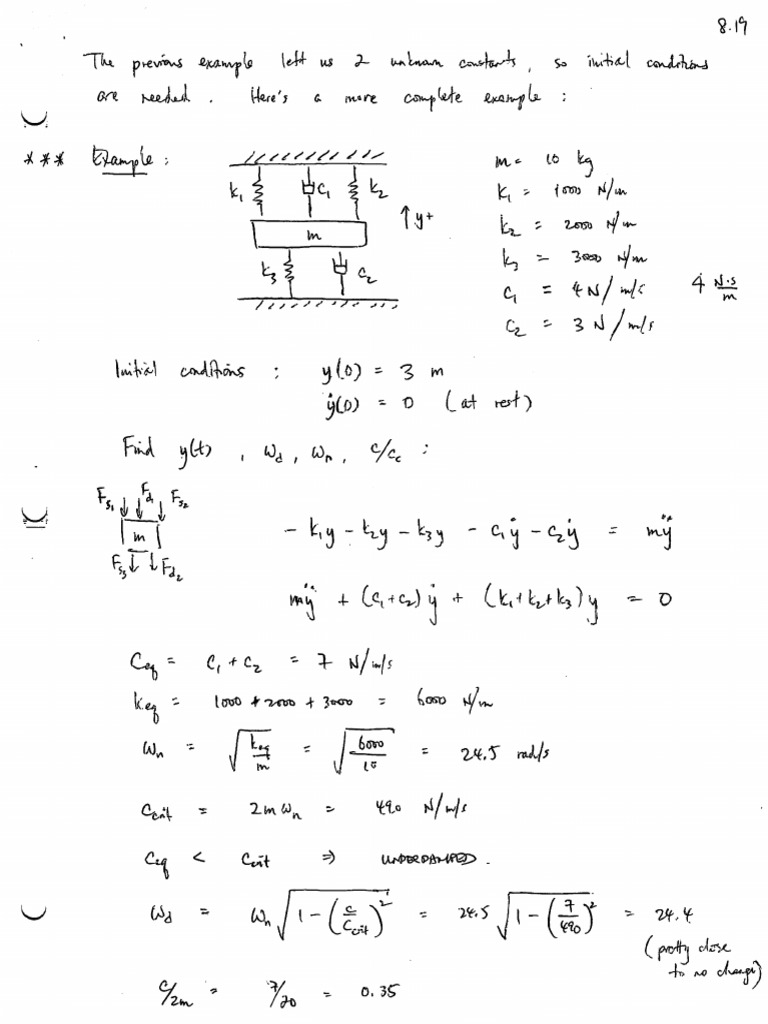 8.19
The previous example left us 2 unknown constants, so initial conditions
are needed. Here's a more complete example:
*** Example:
k₁ c₁ k₂
m
y+
k₃ c₂
m = 10 kg
k₁ = 1000 N/m
k₂ = 2000 N/m
k₃ = 3000 N/m
c₁ = 4 N/m/s 4 N·s/m
c₂ = 3 N/m/s
Initial conditions: y(0) = 3 m
ẏ(0) = 0 (at rest)
Find y(t), ω_d, ω_n, c/c_c:
F_s₁ F_d₁ F_s₂
m
F_s₃ F_d₂
- k₁y - k₂y - k₃y - c₁ẏ - c₂ẏ = mÿ
mÿ + (c₁+c₂)ẏ + (k₁+k₂+k₃)y = 0
C_eq = c₁ + c₂ = 7 N/m/s
k_eq = 1000 + 2000 + 3000 = 6000 N/m
ω_n = √(k_eq/m) = √(6000/10) = 24.5 rad/s
C_crit = 2mω_n = 490 N/m/s
C_eq < C_crit ⇒ UNDERDAMPED.
ω_d = ω_n √(1 - (c/C_crit)²) = 24.5 √(1 - (7/490)²) = 24.4
(pretty close
to no change)
c/2m = 7/20 = 0.35